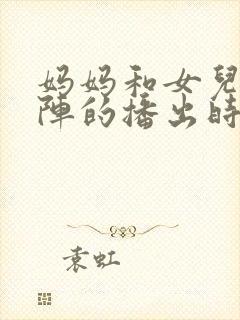 妈妈和女兒
陣的播出時
袁虹